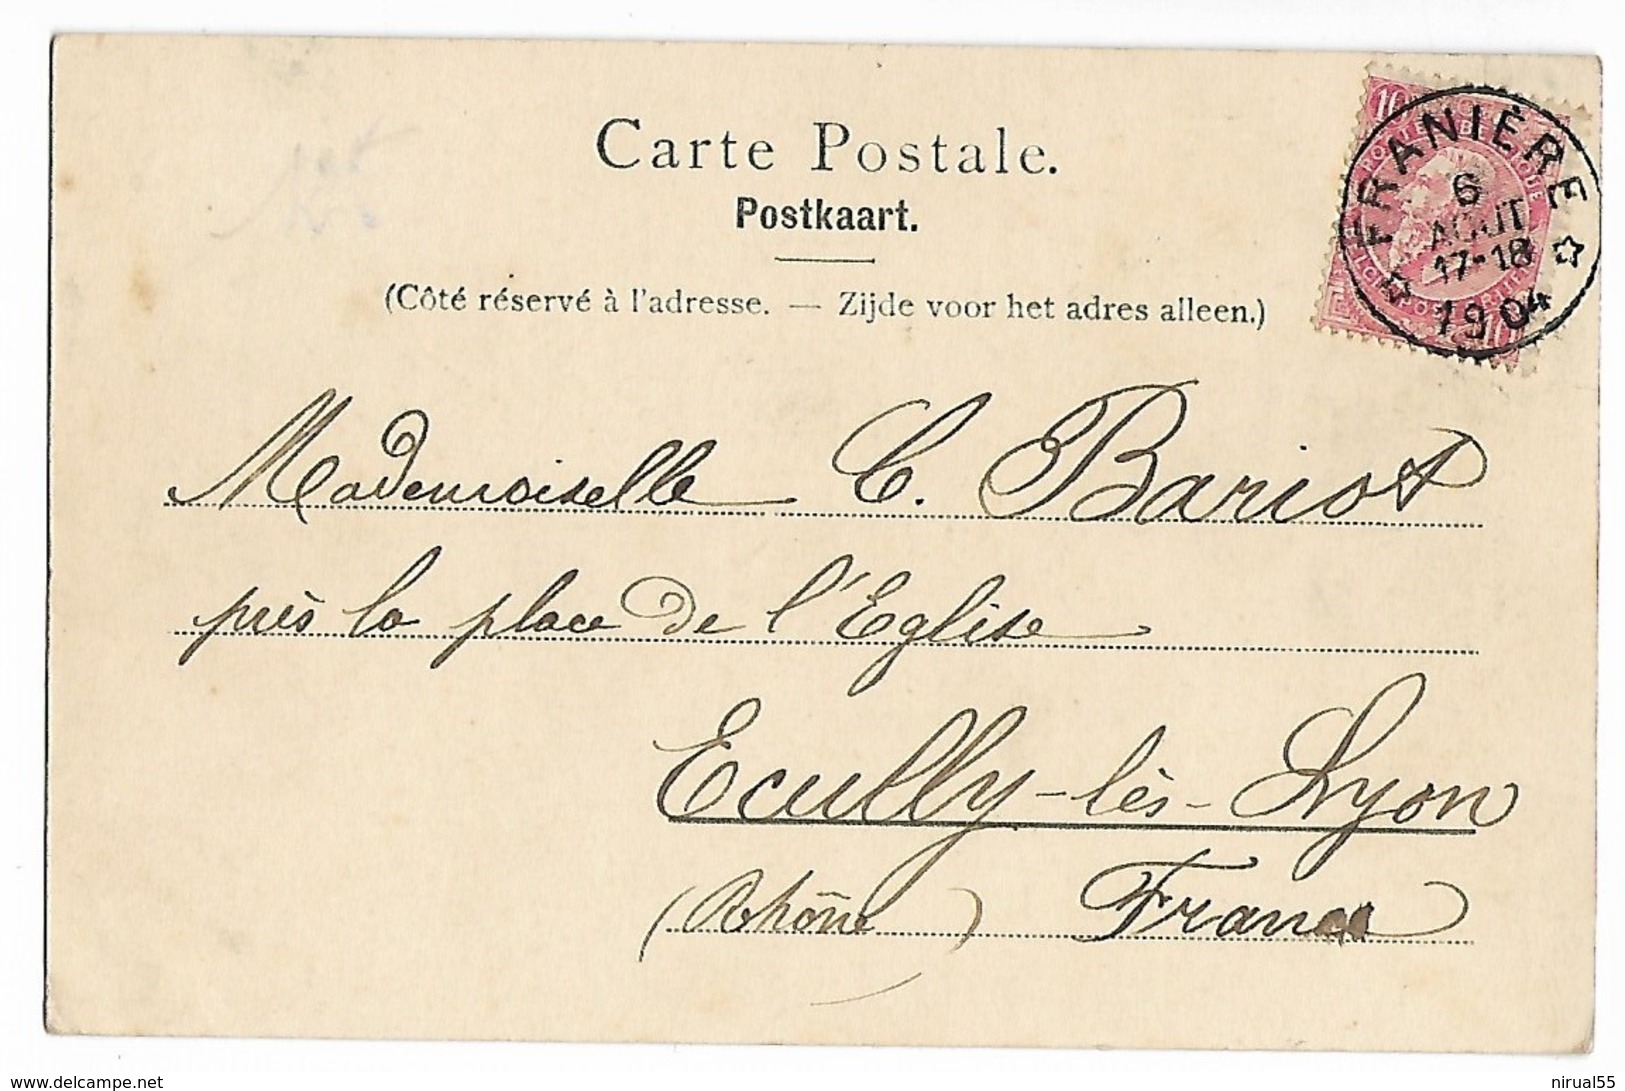 Carte Postale.
Postkaart.
(Côté réservé à l'adresse. — Zijde voor het adres alleen.)
FRANIÈRE
6
AOUT
17-18
1904
Mademoiselle C. Bariot
près la place de l'Eglise
Ecully-lès-Lyon
(Rhône) France
delcampe.net
nirual55